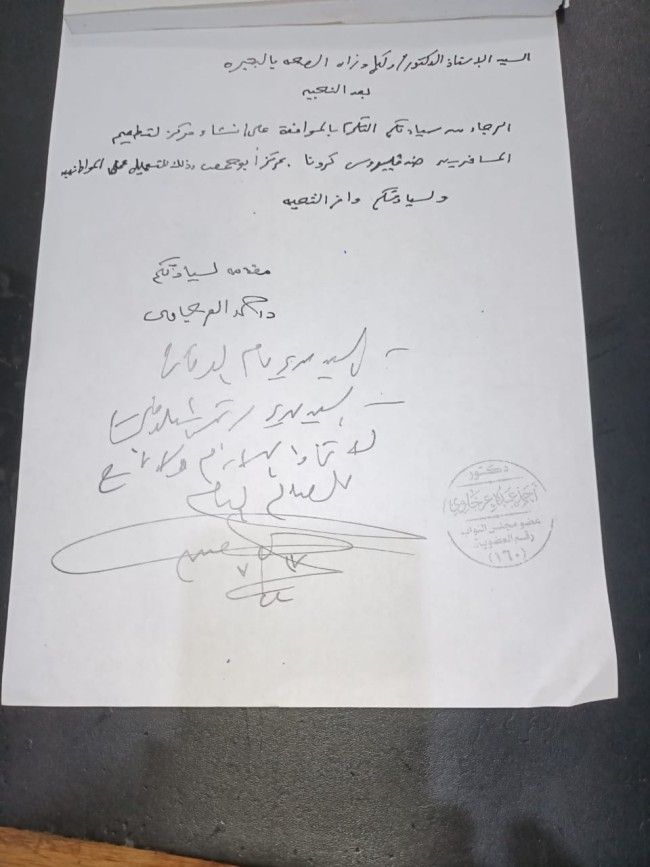 السيد الاستاذ الدكتور / وكيل وزاره الصحه بالبحيره
بعد التحيه
الرجاء من سيادتكم التكرم بالموافقة على إنشاء مركز لتطعيم
المسافرين ضد فيروس كرونا بمركز أبو حمص وذلك للتسهيل على المواطنين
ولسيادتكم وافر التحيه
مقدمه لسيادتكم
د / احمد العرجاوى
السيد مدير عام
السيد مدير
للصالح العام
دكتور
عضو مجلس النواب
رقم العضوية
(١٦٠)